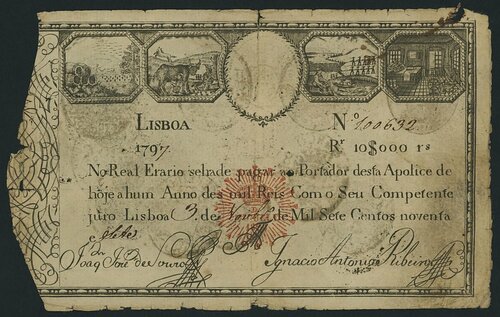 LISBOA Nº 100632
1797. Rˢ 10$000 rs
No Real Erario se hade pagar ao Portador desta Apolice de
hoje a hum Anno des mil Reis Com o Seu Competente
juro Lisboa 3 de de Mil Sete Centos noventa
e Sete
Joaq Joze de Souza Ignacio Antonio Ribeiro